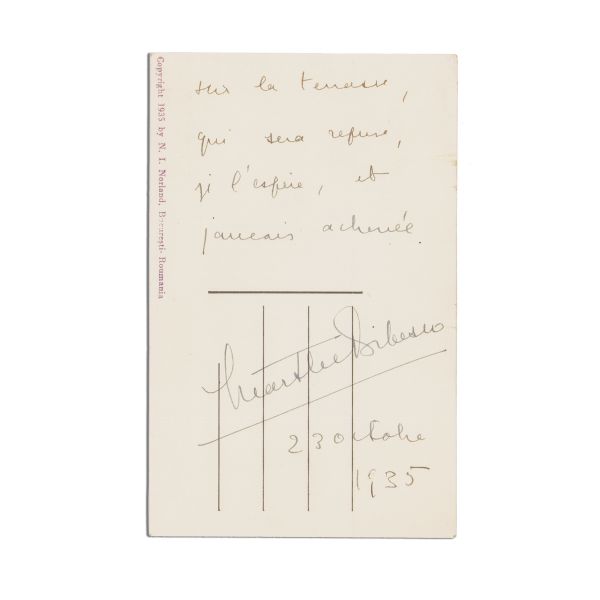 sur la terrasse,
qui sera refusé,
je l'espère, et
jamais achevée
Marthe Bibesco
23 octobre
1935
Copyright 1935 by N. I. Norland, București-Roumania